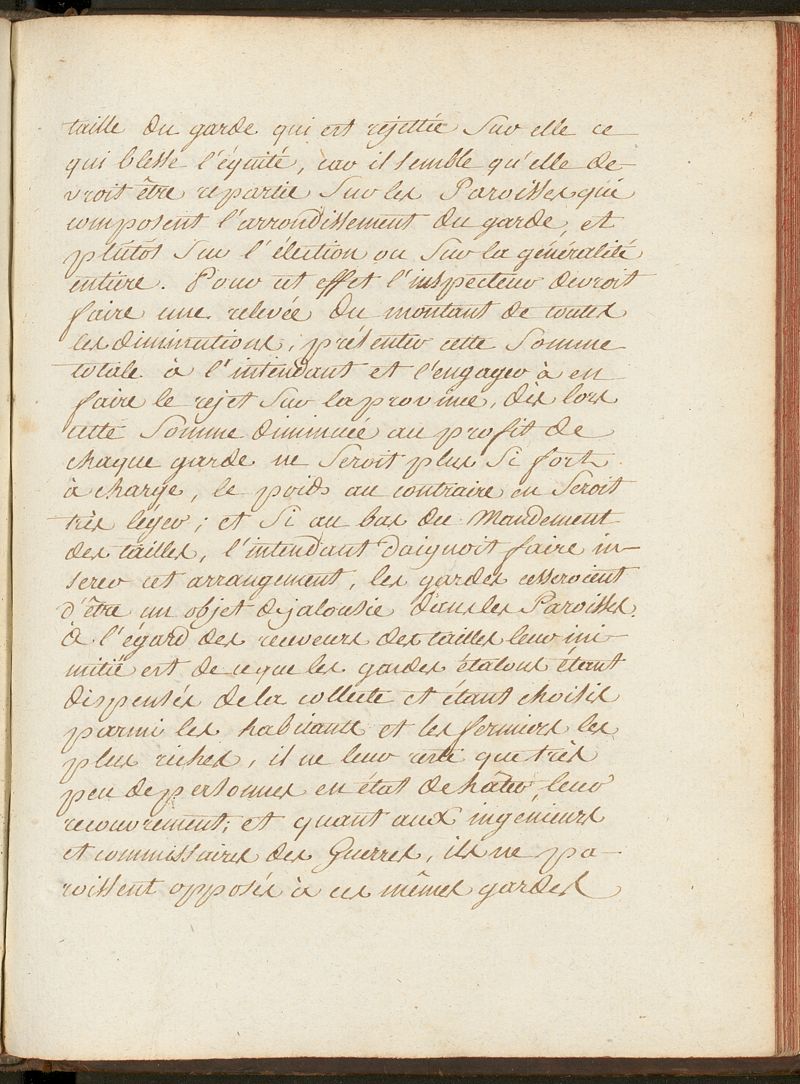 taille du garde qui est rejettée sur elle ce
qui blesse l'équité, car il semble qu'elle de-
vroit être repartie sur les Paroisses qui
composent l'arrondissement du garde, et
plutôt sur l'élection ou sur la généralité
entiere. Pour cet effet l'inspecteur devroit
faire une relevée du montant de toutes
les diminutions, présenter cette somme
totale à l'intendant et l'engager à en
faire le rejet sur la province, dès lors
cette somme diminuée au profit de
chaque garde ne seroit plus si fort
à charge, le poids au contraire en seroit
très léger; et si au bas du Mandement
des tailles, l'intendant daignoit faire in-
serer cet arrangement, les gardes cesseroient
d'être un objet de jalousie dans les Paroisses.
à l'égard des receveurs des tailles leur ini-
mitié est de ce que les gardes étalons étant
dispensés de la collecte et étant choisis
parmi les habitants et les fermiers les
plus riches, il ne leur reste que très
peu de personnes en état de hâter leur
recouvrement; et quant aux ingénieurs
et commissaires des Guerres, ils ne pa-
roissent opposés à ces mêmes gardes